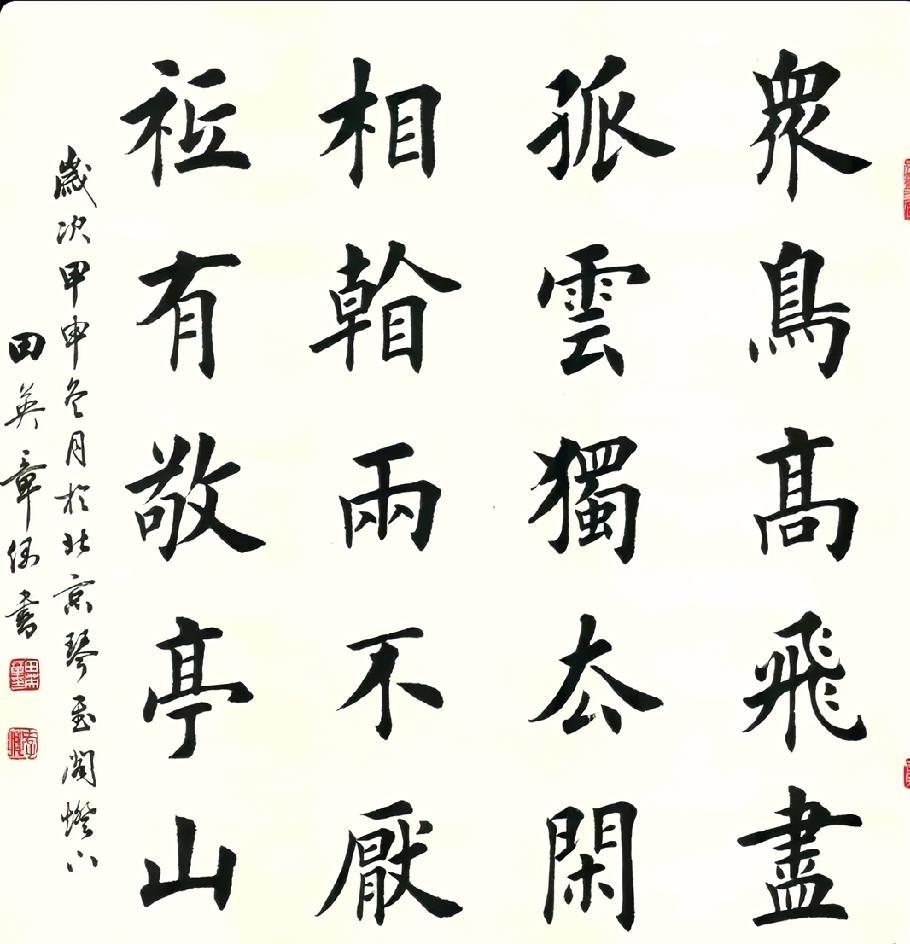 眾鳥髙飛盡
孤雲獨厺閑
相看兩不厭
祗有敬亭山
歲次甲申冬月於北京琴閣燈下
田英章偶書